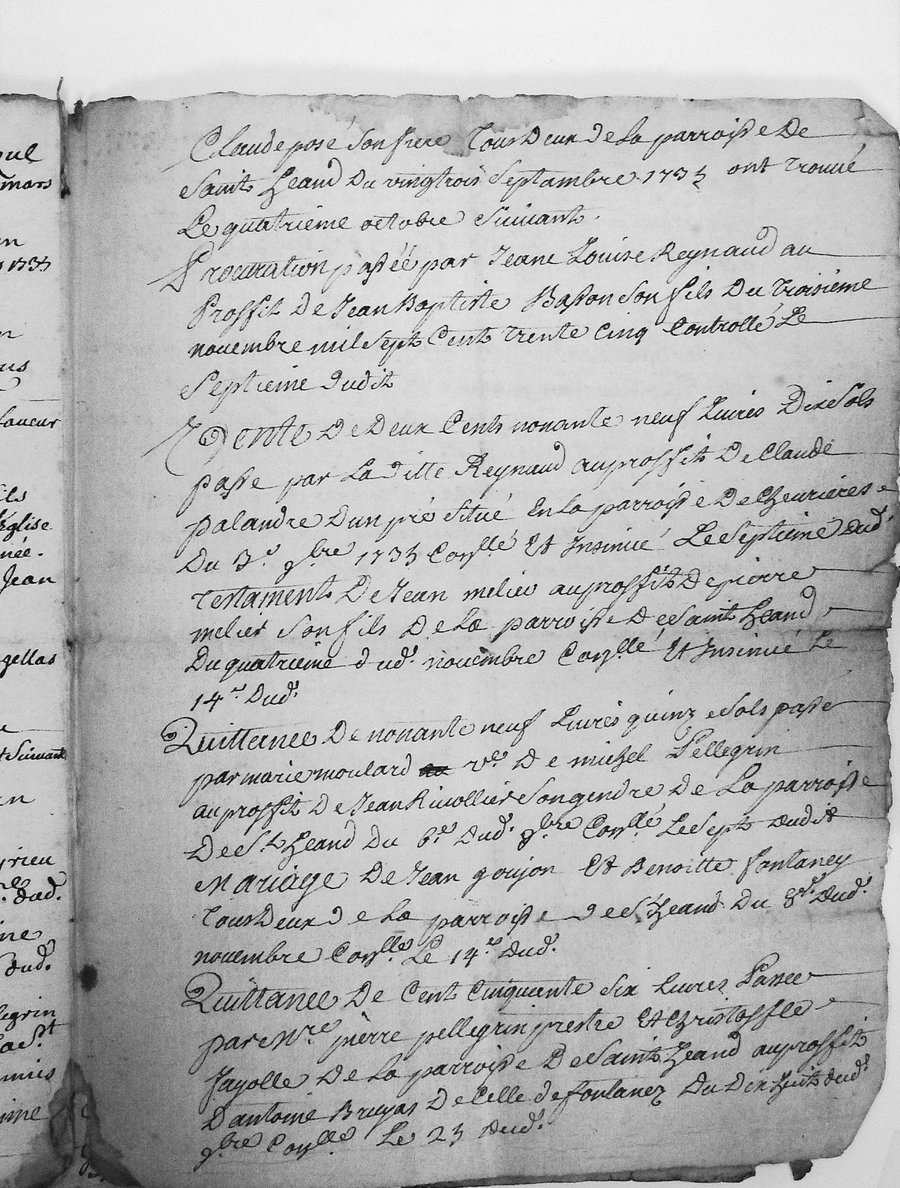 Claude posé son frere tous deux de la parroisse de
Saint heand du vingtrois septembre 1735 ont trouvé
Le quatrieme octobre suivant.
Procuration passéé par Jeane Louise Reynaud au
Proffit de Jean Baptiste Basson son fils du troisieme
novembre mil sept cent trente cinq controllé Le
septieme dudit
Vente de deux cents nonante neuf livres dix sols
passe par La ditte Reynaud au proffit de Claude
palandre dun pré situé en la parroisse de Chevrieres
Du 3.e 9bre 1735 Con.llé et Insinué Le septieme dud.
Testament de Jean melier au proffit de pierre
melier son fils de La parroisse de Saint heand
Du quatrieme dud. novembre Con.llé et Insinué Le
14.e dud.
Quittance de nonante neuf Livres quinze sols passe
par marie moulard v.e de michel Pellegrin
au proffit de Jean Rivollier son gendre de La parroisse
De S.t heand du 6.e dud. 9bre Con.llé Le sept dudit
Mariage de Jean goujon et Benoitte fontaney
tous deux de La parroisse de S. heand du 8.e dud.
novembre Con.llé Le 14.e dud.
Quittance de cent cinquante six livres Passee
par m.re pierre pellegrin prestre et Christoffle
fayolle de La parroisse de Saint heand au proffit
D'antoine Bruyas de Celle de fontanez du dix huit dud.
9bre Con.llé Le 23 dud.